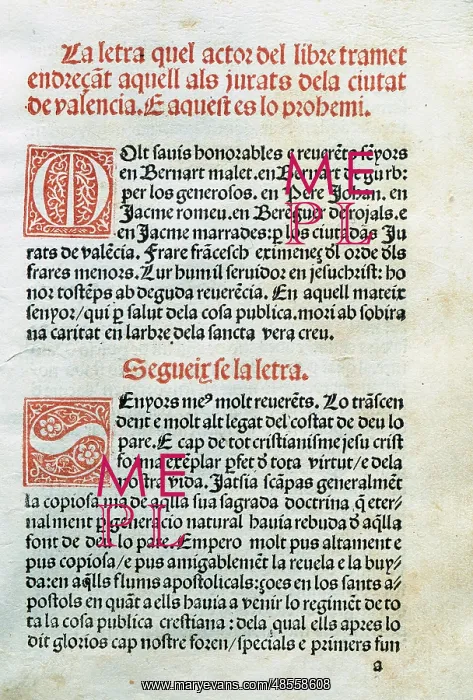 La letra quel actor del libre tramet
endreçãt aquell als jurats dela ciutat
de valencia. E aquest es lo prohemi.
MOlt sauis honorables e reuerẽts sẽyors
en Bernart malet. en B t de gurb:
per los generosos. en Pere Johan. en
Jacme romeu. en Bereguer de rojals. e
en Jacme marrades: p los ciutadãs Ju
rats de valẽcia. Frare frãcesch eximeneç dl orde dls
frares menors. Lur humil seruidor en jesuchrist: ho
nor tostẽps ab deguda reuerẽcia. En aquell mateix
senyor/qui p salut dela cosa publica. mori ab sobira
na caritat en larbre dela sancta vera creu.
Segueix se la letra.
SEnyors meꝰ molt reuerẽts. Lo trãscen
dent e molt alt legat del costat de deu lo
pare. E cap de tot cristianisme jesu crist
forma exẽplar pfet d tota virtut/e dela
nostra vida. Jatsia scãpas generalmẽt
la copiosa de aqlla sua sagrada doctrina q̃ eter/
nalment p generacio natural hauia rebuda d aqlla
font de deu lo pare. Empero mõlt pus altament e
pus copiosa/e pus amigablemẽt la reuela e la buy/
da: en aqlls flums apostolicals: çoes en los sants a/
postols en quãt a ells hauia a venir lo regimẽt de to
ta la cosa publica crestiana: dela qual ells apres lo
dit glorios cap nostre foren/specials e primers fun
a
ME
PL
ME
PL
www.maryevans.com/48558608